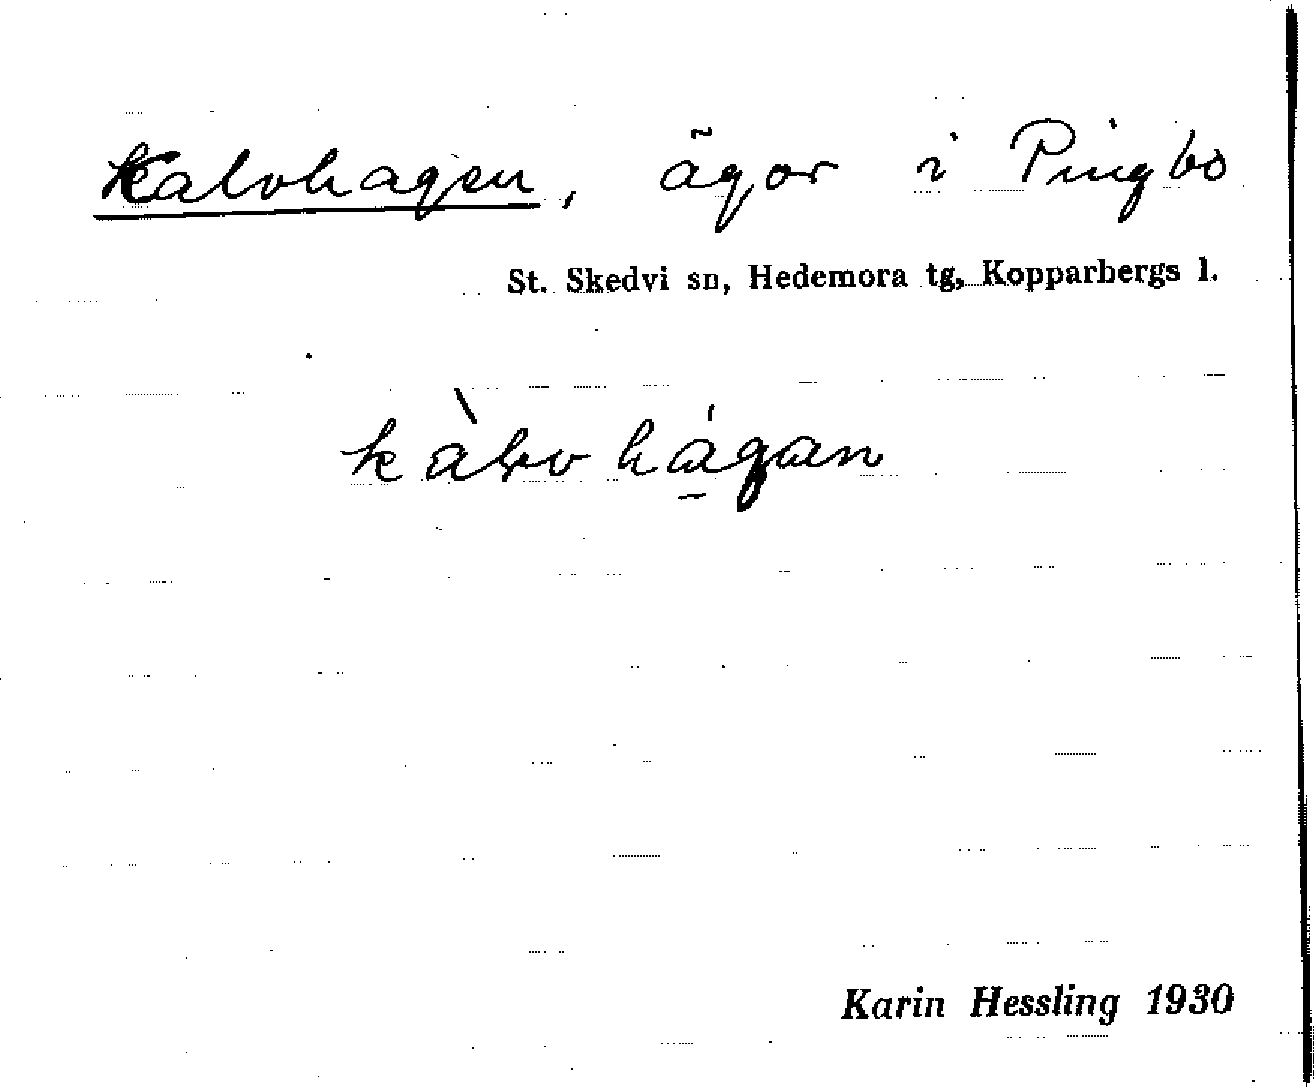 Kalvhagen, ägor i Pingbo
St. Skedvi sn, Hedemora tg, Kopparbergs l.
kàlvhágan
Karin Hessling 1930